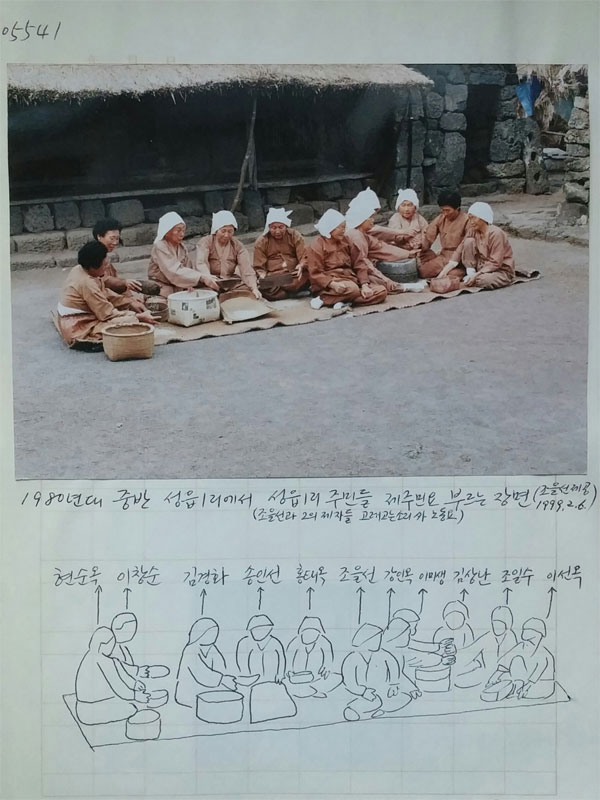 05541
1980년대 중반 성읍1리에서 성읍1리 주민들 제주민요 부르는 장면 (조을선제공 1999.2.6.)
(조을선과 그의 제자들 고레고는소리 와 노동요)
현순옥 이창순 김경화 송인선 홍태옥 조을선 강인옥 이미생 김상난 조일수 이선옥